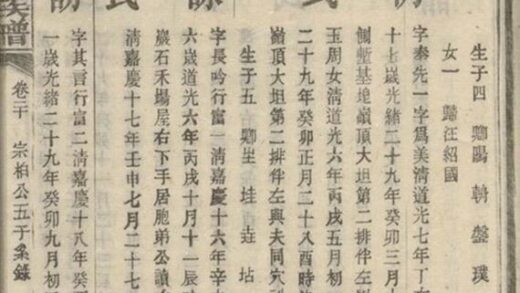 氏
詠
生子四 卿陽 輈 盤 璞
女一 歸汪紹國
字奉先一字爲美清道光七年丁
十七歲光緒二十九年癸卯三月
側塹基埠嶺頂大坦第二排伴左
玉周女清道光六年丙戌五月初
二十九年癸卯正月二十八酉時
嶺頂大坦第二排伴左與夫同穴
生子五 卿生 垤 垚 坫
字長吟行富一清嘉慶十六年辛
六歲道光六年丙戌十月十一辰
巖石禾場屋右下手居胞弟公
清嘉慶十七年壬申七月二十七
字其言行富二清嘉慶十八年癸
一歲光緒二十九年癸卯九月初
譜 卷二十 宗柏公五子系錄